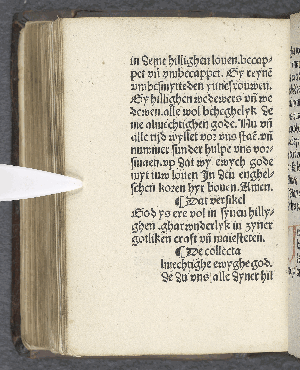 in deme hillighen louen. becap-
pet vñ vmbecappet. Gy reyne
vmbesmytteden iuncfrouwen.
Gy hillighen wedewers vñ we
dewen. alle wol beheghelyk de
me almechtighen gode. Nu vñ
alle tijd wyllet vor vns staē. vñ
nummer sunder hulpe vns vor-
sumen. vp dat wy ewych gode
myt iuw louen In den enghel-
schen koren hyr bouen. Amen.
¶ Dat versikel
God ys ere vol in synen hilly-
ghen. ghar wnderlyk in zyner
gotliken craft vñ maiesteten.
¶ De collecta
mechtighe ewyghe god.
de du vns alle dyner hil